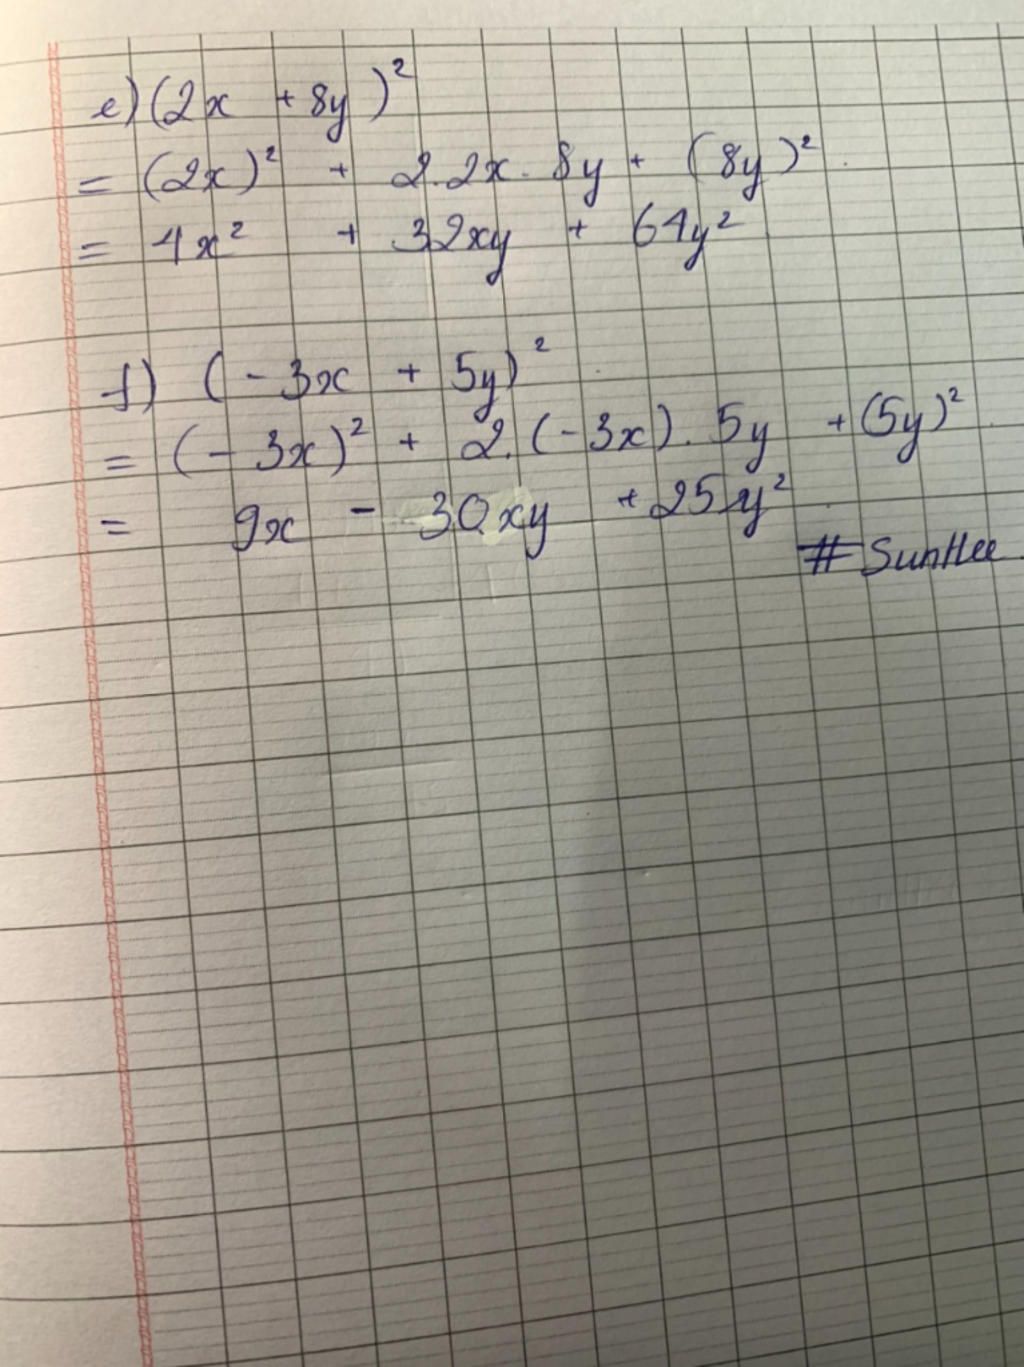 e) (2x + 8y)²
= (2x)² + 2.2x.8y + (8y)²
= 4x² + 32xy + 64y²
f) (-3x + 5y)²
= (-3x)² + 2.(-3x).5y + (5y)²
= 9x - 30xy + 25y²
# SunHee